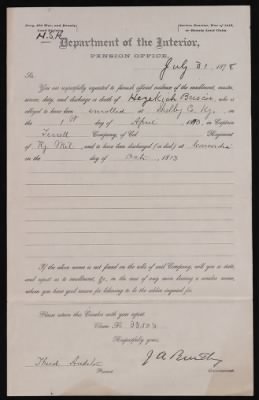 Department of the Interior,
PENSION OFFICE,
July 31, 1878
Sir:
You are respectfully requested to furnish official evidence of the enrollment, muster,
service, duty, and discharge or death of Hezekiah Briscoe, who is
alleged to have been enrolled at Shelby Co Ky. on
the 1st day of April 1813, in Captain
Ferrell Company, of Col Regiment
of Ky Mil and to have been discharged (or died) at
the day of Oct. 1813
If the above name is not found on the rolls of said Company, will you so state,
and report as to enrollment, &c., in the case of any man bearing a similar name,
whom you have good reason for believing to be the soldier inquired for.
Please return this Circular with your report.
Claim No.
Respectfully yours,
Third Auditor
J A Bentley
Commissioner.